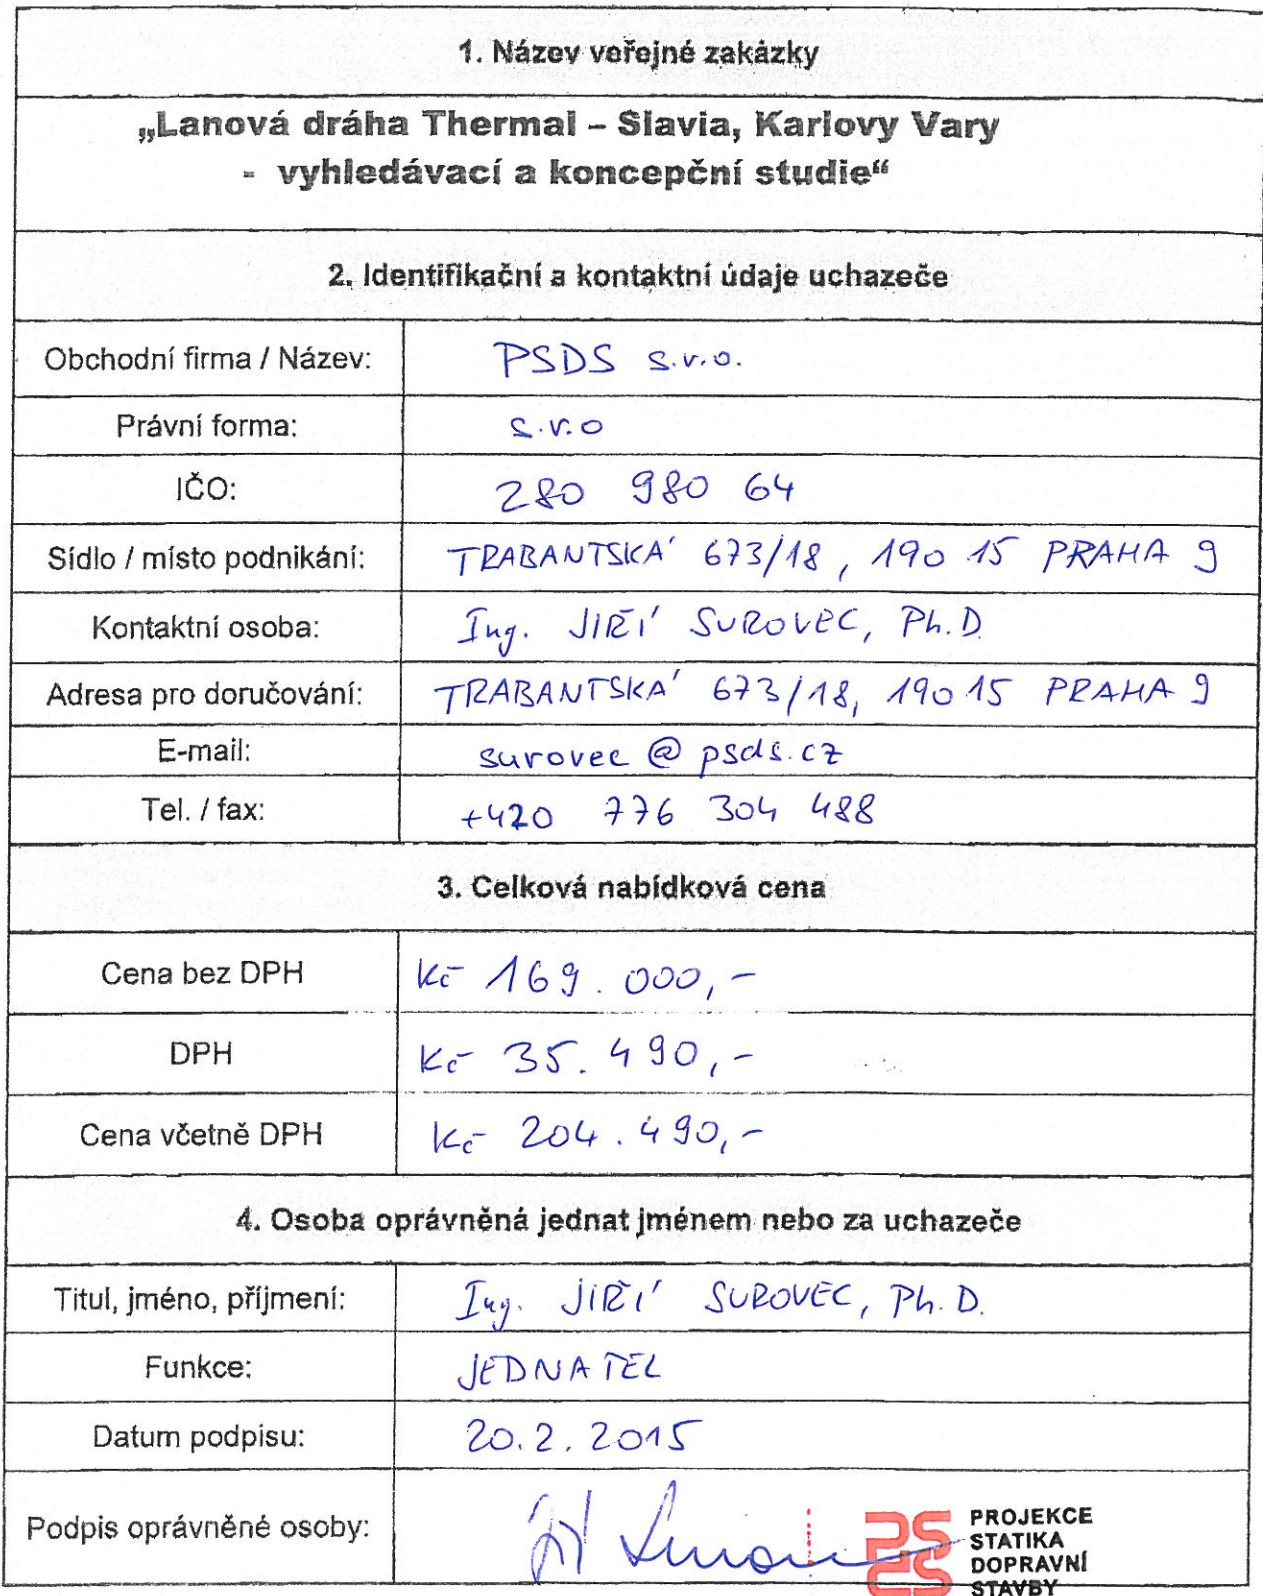 1. Název veřejné zakázky
„Lanová dráha Thermal – Slavia, Karlovy Vary
- vyhledávací a koncepční studie“
2. Identifikační a kontaktní údaje uchazeče
Obchodní firma / Název: PSDS s.r.o.
Právní forma: s.r.o
IČO: 280 980 64
Sídlo / místo podnikání: TRABANTSKÁ 673/18, 190 15 PRAHA 9
Kontaktní osoba: Ing. JIŘÍ SUROVEC, Ph.D.
Adresa pro doručování: TRABANTSKÁ 673/18, 190 15 PRAHA 9
E-mail: surovec@psds.cz
Tel. / fax: +420 776 304 488
3. Celková nabídková cena
Cena bez DPH Kč 169.000,-
DPH Kč 35.490,-
Cena včetně DPH Kč 204.490,-
4. Osoba oprávněná jednat jménem nebo za uchazeče
Titul, jméno, příjmení: Ing. JIŘÍ SUROVEC, Ph.D.
Funkce: JEDNATEL
Datum podpisu: 20.2.2015
Podpis oprávněné osoby:
PROJEKCE
STATIKA
DOPRAVNÍ
STAVBY